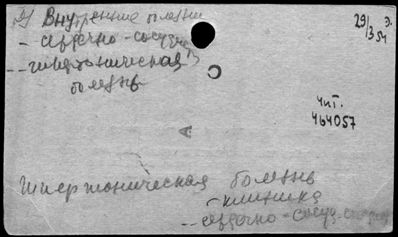 Внутренние болезни
- сердечно-сосудис
-- гипертоническая
болезнь
29/III 54 Э.
Чит.
464057
A
Гипертоническая болезнь
- клиника
-- сердечно-сосуд.